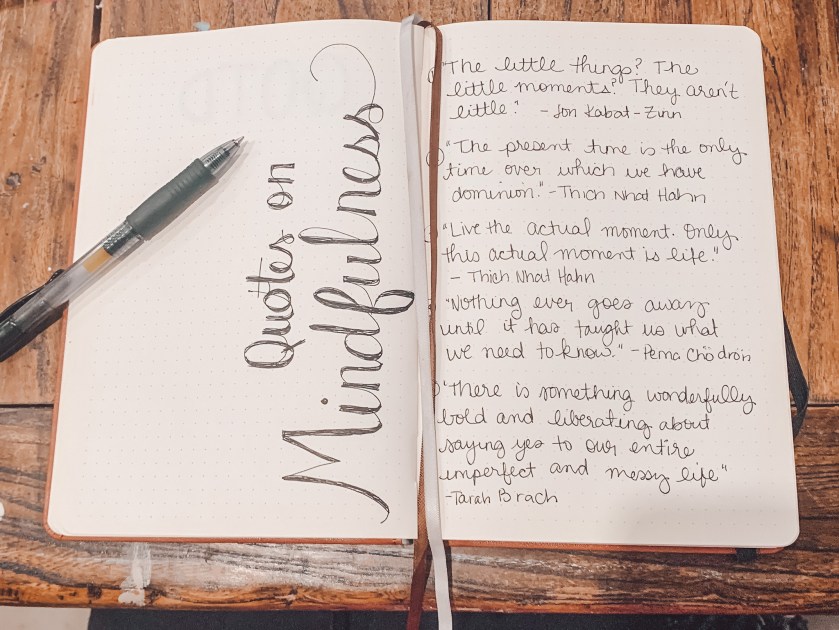 Quotes on
Mindfulness
"The little things? The
little moments? They aren't
little." - Jon Kabat-Zinn
"The present time is the only
time over which we have
dominion." - Thich Nhat Hahn
"Live the actual moment. Only
this actual moment is life."
- Thich Nhat Hahn
"Nothing ever goes away
until it has taught us what
we need to know." - Pema Chödrön
"There is something wonderfully
bold and liberating about
saying yes to our entire
imperfect and messy life"
-Tarah Brach